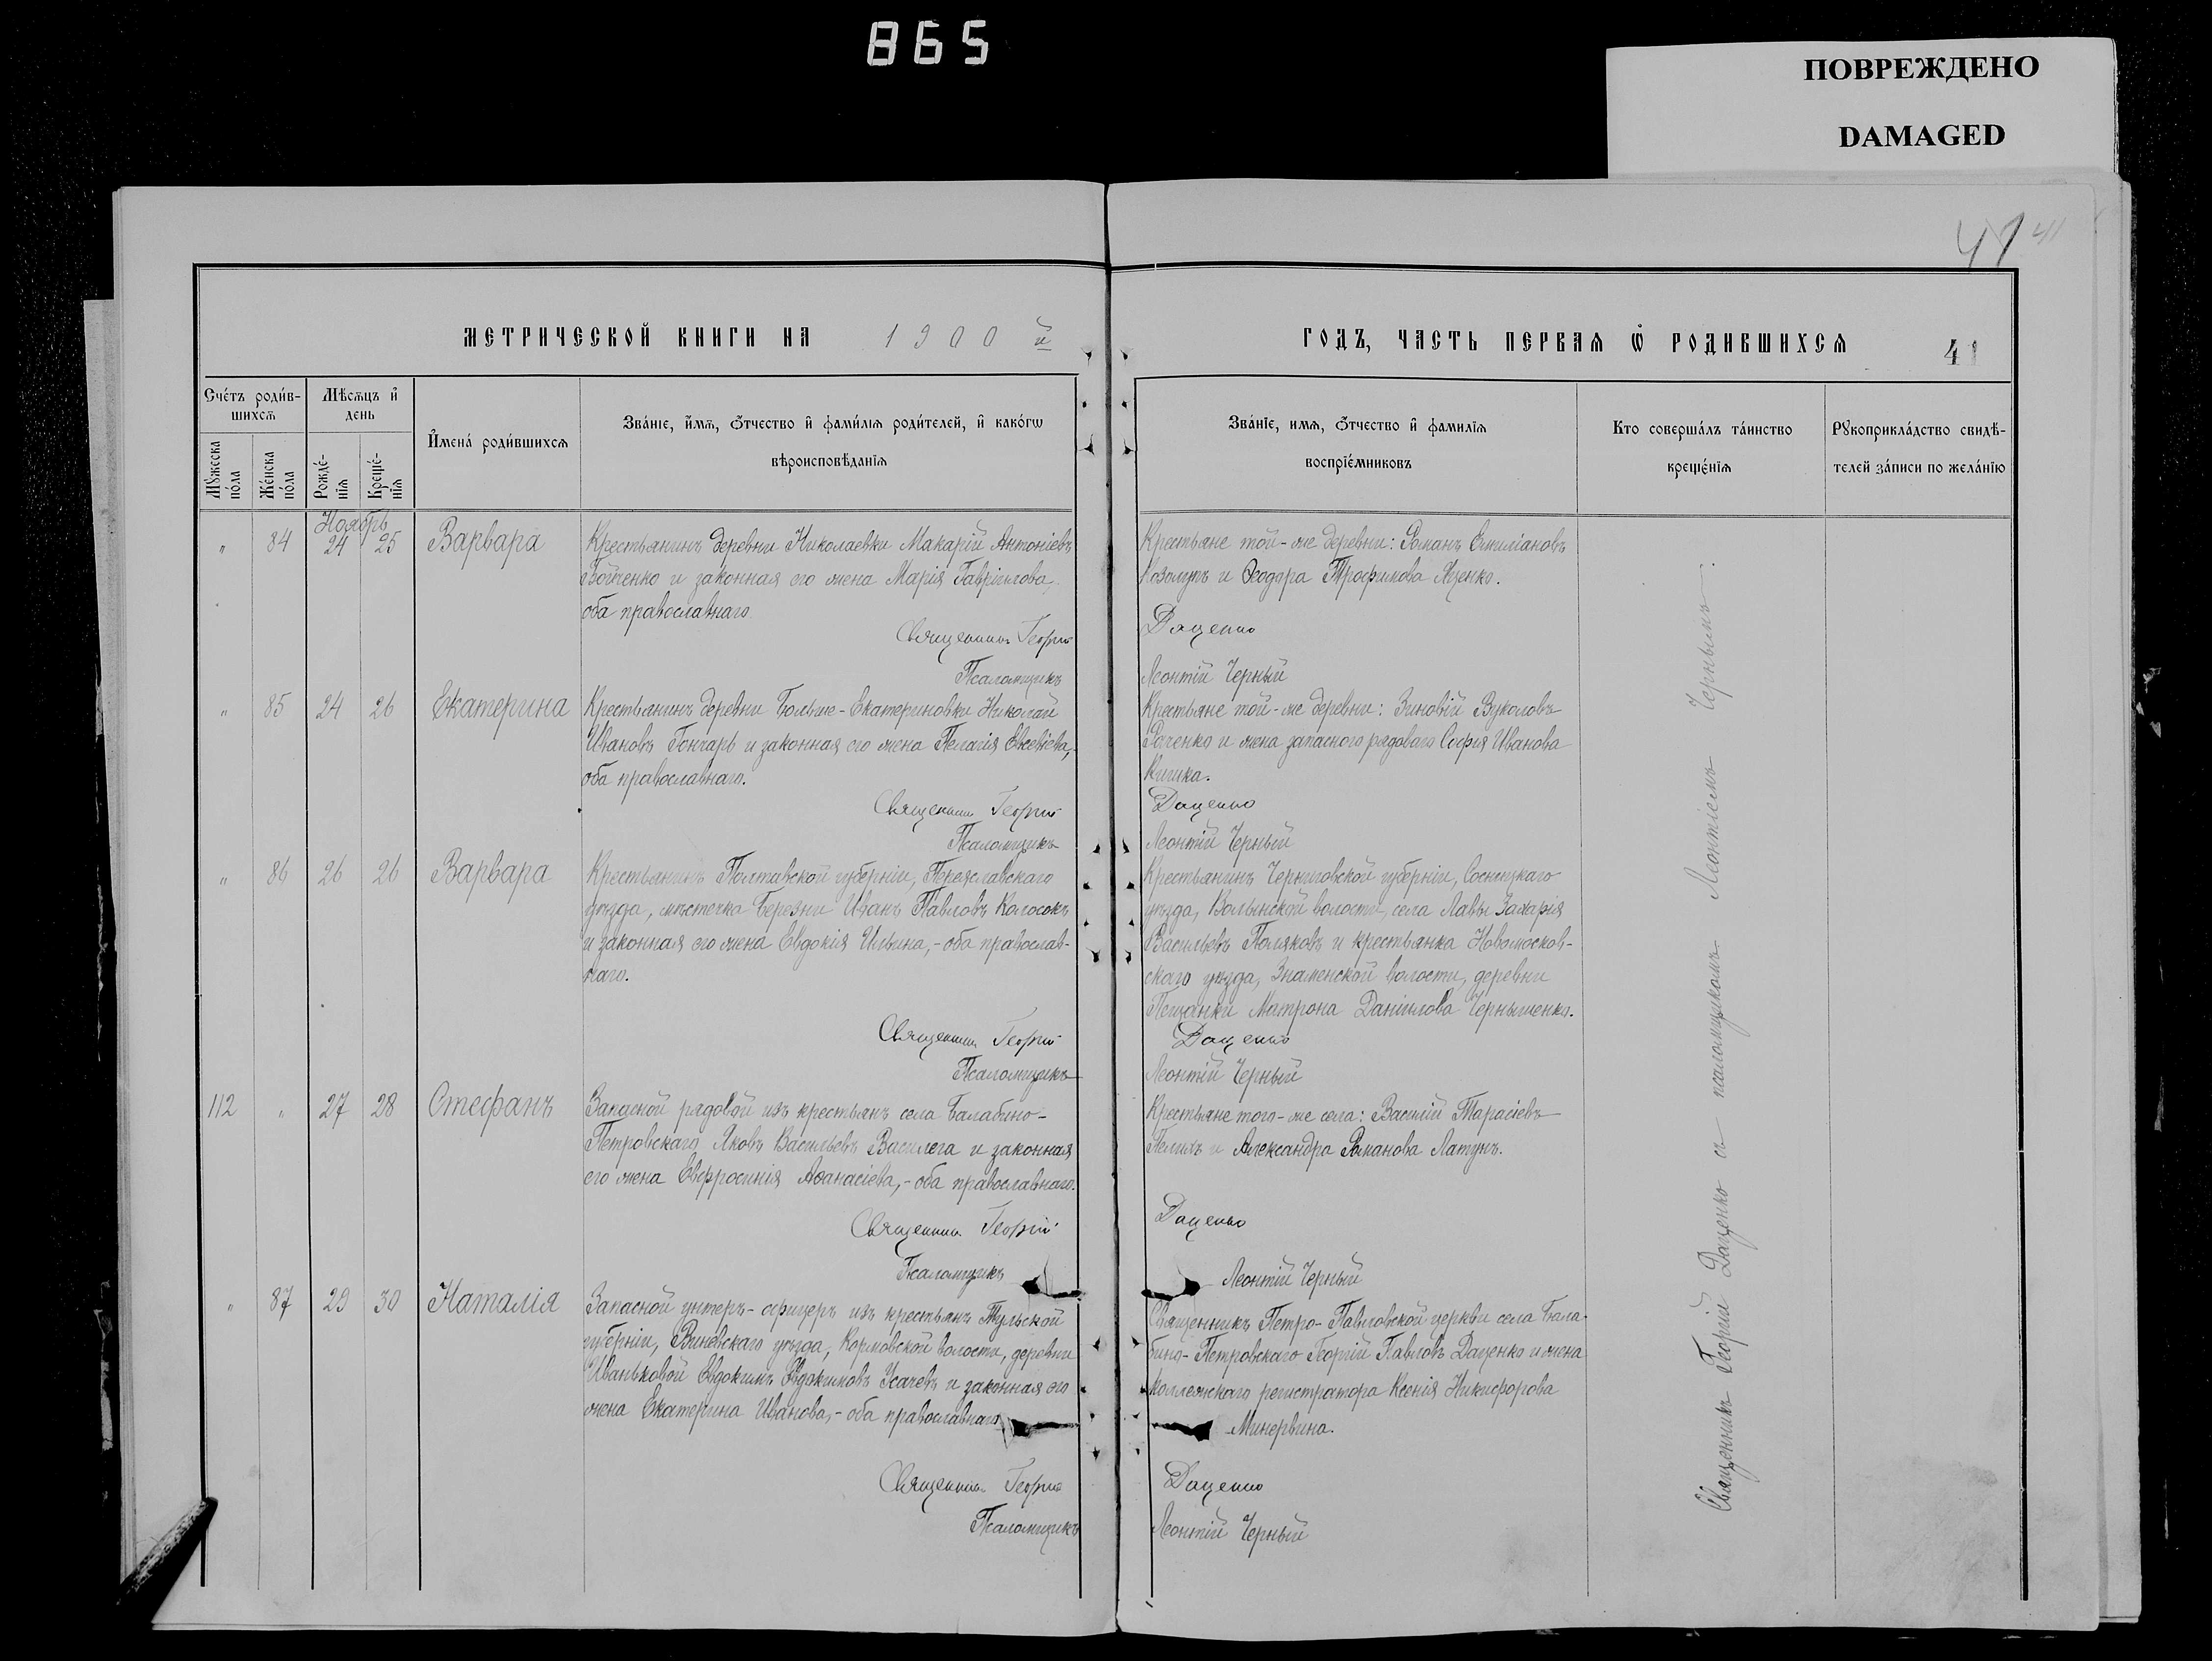 865
ПОВРЕЖДЕНО
DAMAGED
41 41
МЕТРИЧЕСКОЙ КНИГИ НА 1900 й
ГОДЪ, ЧАСТЬ ПЕРВАѦ Ѡ РОДИВШИХСѦ
41
Счéтъ роди́в-
шихсѧ
Мѣсѧцъ и҆
день
И҆менá роди́вшихсѧ
Звáнїе, и҆́мѧ, ѻ҆́тчество и҆ фами́лїѧ роди́телей, и҆ какóгѡ
вѣроисповѣ́данїѧ
Мꙋ́жеска
пóла
Жéнска
пóла
Рожде́-
нїѧ
Креще́-
нїѧ
Звáнїе, имѧ, ѻ҆́тчество и҆ фамилїѧ
воспрїе́мниковъ
Кто совершáлъ тáинство
креще́нїѧ
Рꙋкоприклáдство свидѣ́-
телей зáписи по желáнїю
Ноябрь
" 84 24 25 Варвара
Крестьянинъ деревни Николаевки Макарій Антоніевъ
Бойченко и законная его жена Марія Гавріилова,
оба православнаго
Священникъ Георгій
Псаломщикъ
Крестьяне той-же деревни: Романъ Емиліановъ
и Ѳеодора Трофимова Яценко.
Даценко
Леонтій Черный
" 85 24 26 Екатерина
Крестьянинъ деревни Больше-Екатериновки Николай
Ивановъ Гончаръ и законная его жена Пелагія Евсевіева,
оба православнаго.
Священникъ Георгій
Псаломщикъ
Крестьяне той-же деревни: Зиновій Вуколовъ
и жена запасного рядоваго Софія Иванова
Кишка.
Даценко
Леонтій Черный
" 86 26 26 Варвара
Крестьянинъ Полтавской губерніи, Переяславскаго
уѣзда, мѣстечка Березни Иванъ Павловъ Колосокъ
и законная его жена Евдокія Ильина,-оба православ-
наго.
Священникъ Георгій
Псаломщикъ
Крестьянинъ Черниговской губерніи, Сосницкаго
уѣзда, Волынской волости, села Лавы Захарія
Васильевъ Поляковъ и крестьянка Новомосков-
скаго уѣзда, Знаменской волости, деревни
Пещанки Матрона Даніилова Чернышенко.
Даценко
Леонтій Черный
112 " 27 28 Стефанъ
Запасной рядовой изъ крестьянъ села Балабино-
Петровскаго Яковъ Васильевъ Василега и законная
его жена Евфросинія Аѳанасіева,-оба православнаго.
Священникъ Георгій
Псаломщикъ
Крестьяне того-же села: Василій Тарасіевъ
Пелихъ и Александра Романова Латунъ.
Даценко
Леонтій Черный
" 87 29 30 Наталія
Запасной унтеръ-офицеръ изъ крестьянъ Тульской
губерніи, Веневскаго уѣзда, волости, деревни
Иваньковой Евдокимъ Евдокимовъ Усачевъ и законная его
жена Екатерина Иванова,-оба православнаго
Священникъ Георгій
Псаломщикъ
Священникъ Петро-Павловской церкви села Бала-
бино-Петровскаго Георгій Павловъ Даценко и жена
коллежскаго регистратора Ксенія Никифорова
Минервина.
Даценко
Леонтій Черный
Священникъ Георгій Даценко съ псаломщикомъ Леонтіемъ Чернымъ.